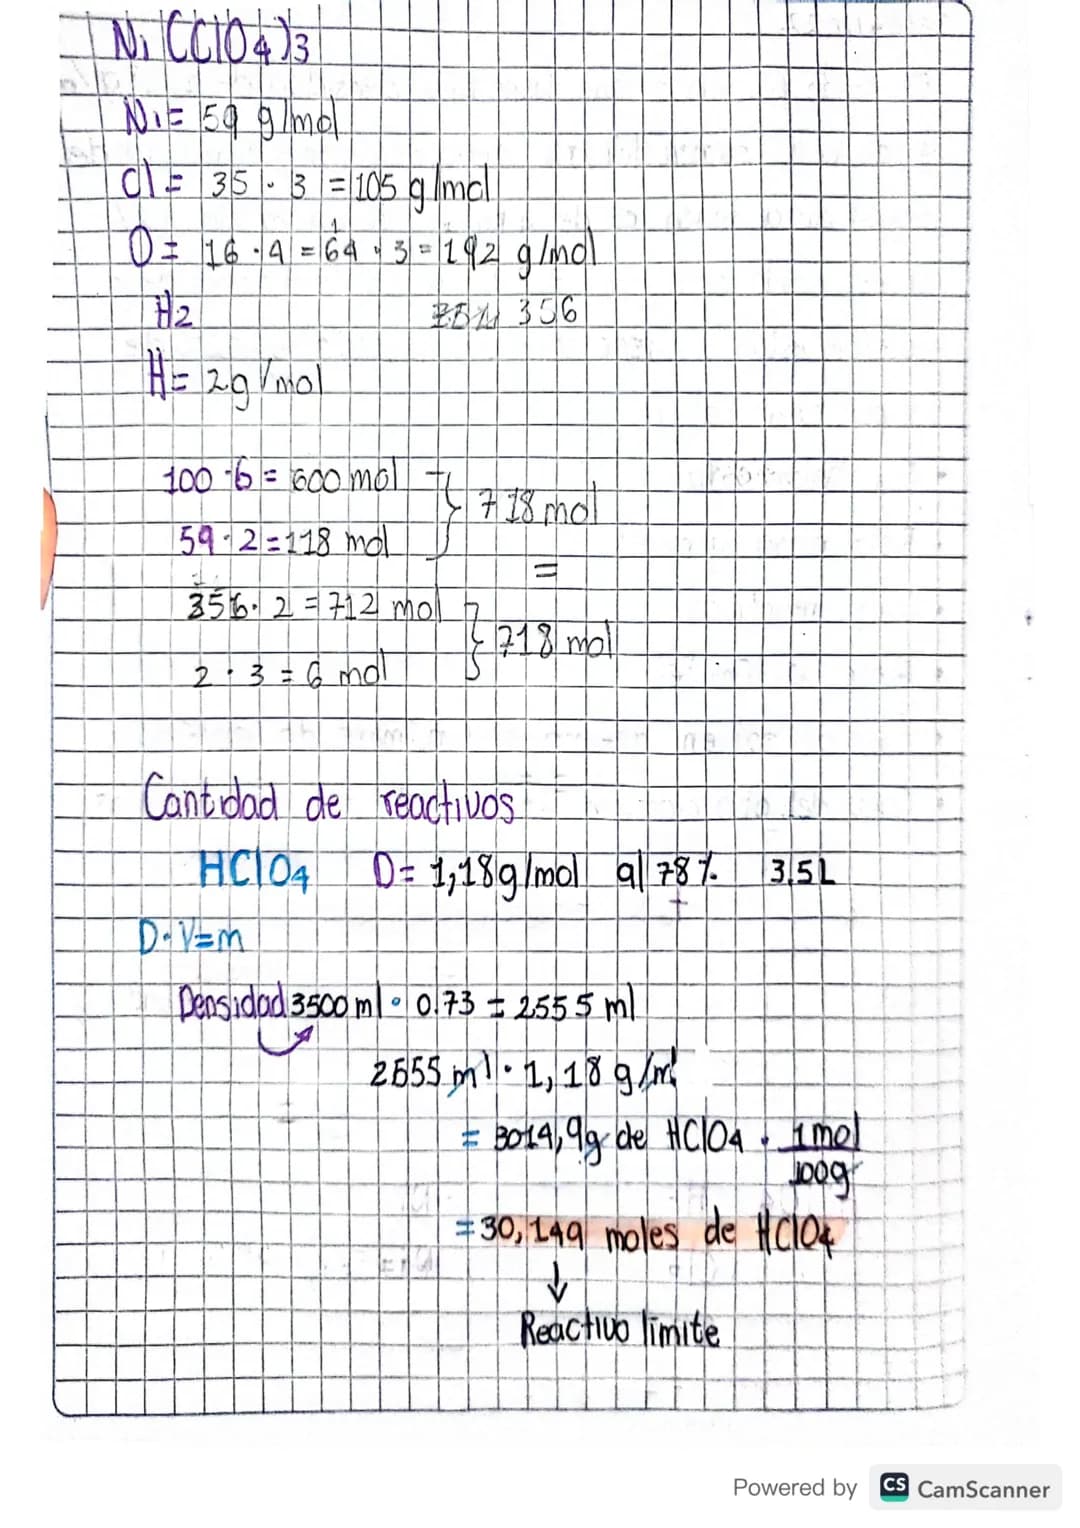 Ni(ClO4)3
Ni= 59 g/mol
Cl= 35 · 3 = 105 g/mol
O= 16 · 4 = 64 · 3 = 192 g/mol
H2 356
H= 2g/mol
100 · 6 = 600 mol } 718 mol
59 · 2 = 118 mol
=
356 · 2 = 712 mol } 718 mol
2 · 3 = 6 mol
Cantidad de reactivos
HClO4 D= 1,18g/mol al 78% 3,5L
D·V=m
Densidad 3500ml · 0.73 = 2555 ml
2555 ml · 1,18 g/ml
= 3014,9g de HClO4 · 1mol
100g
= 30,149 moles de HClO4
↓
Reactivo límite
Powered by CS CamScanner